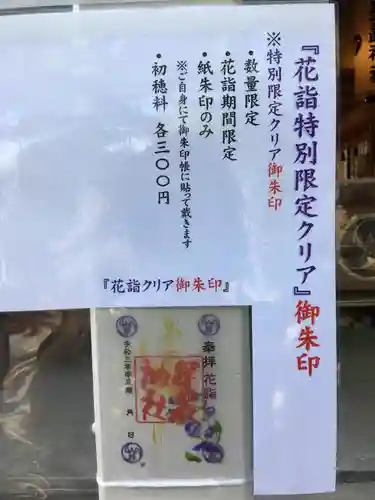 『花詣特別限定クリア』御朱印
※特別限定クリア御朱印
・数量限定
・花詣期間限定
・紙朱印のみ
※ご自身にて御朱印帳に貼って戴きます
・初穂料 各三〇〇円
『花詣クリア御朱印』
奉拝 花詣
令和三年
月
日